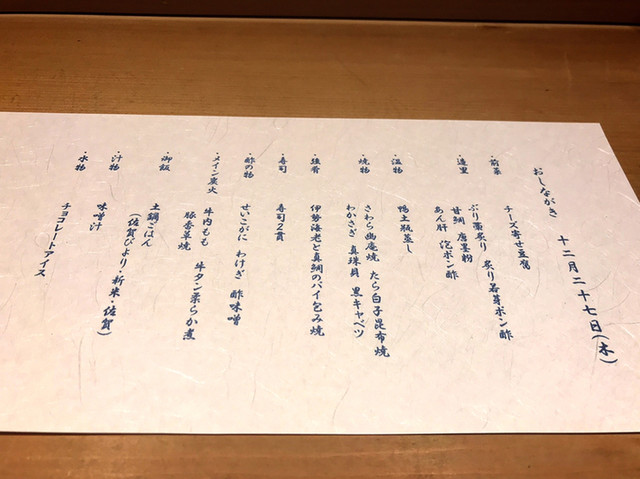 おしながき 十二月二十七日(木)
・前菜 チーズ寄せ豆腐
・造里 ぶり藁炙り 炙り若芽ポン酢
甘鯛 唐墨粉
あん肝 泡ポン酢
・温物 鴨土瓶蒸し
・焼物 さわら幽庵焼 たら白子昆布焼
わかさぎ 真珠貝 黒キャベツ
・強肴 伊勢海老と真鯛のパイ包み焼
・寿司 寿司2貫
・酢の物 せいこがに わけぎ 酢味噌
・メイン炭火 牛内もも 牛タン柔らか煮
豚香草焼
・御飯 土鍋ごはん
(佐賀びより・新米・佐賀)
・汁物 味噌汁
・水物 チョコレートアイス